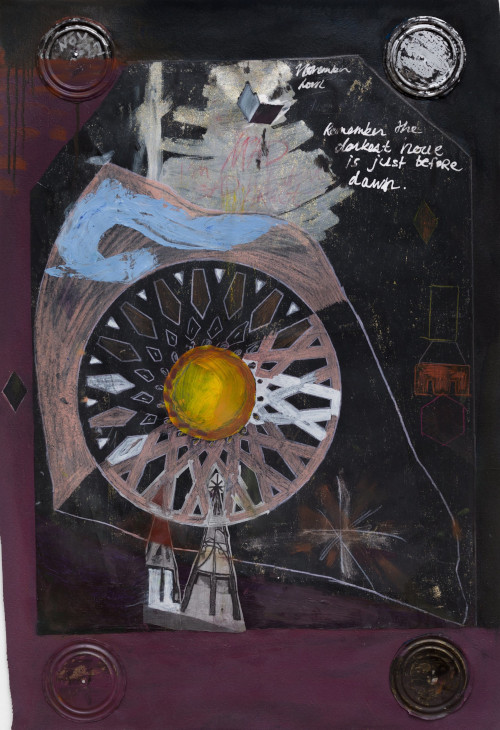 NOV
November
Remember the
darkest hour
is just before
dawn.